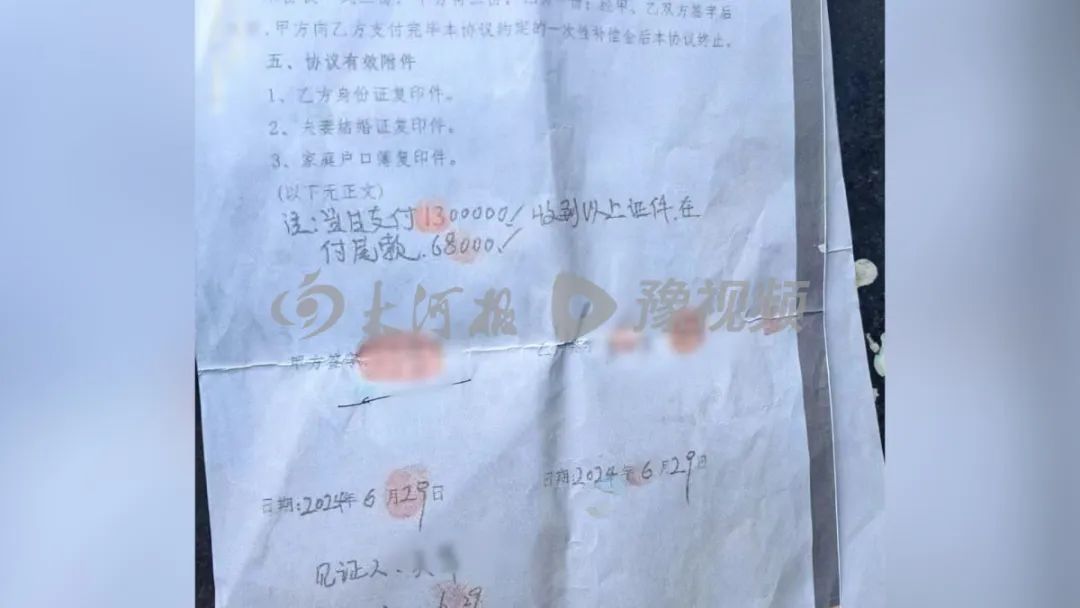 签字后
,甲方向乙方支付完毕本协议约定的一次性补偿金后本协议终止。
五、协议有效附件
1、乙方身份证复印件。
2、夫妻结婚证复印件。
3、家庭户口簿复印件。
(以下无正文)
注:当日支付1300000/ 收到以上证件.在
付尾款.68000./
大河报 豫视频
甲方签字
日期:2024年6月29日
日期:2024年6月29日
见证人
6 29